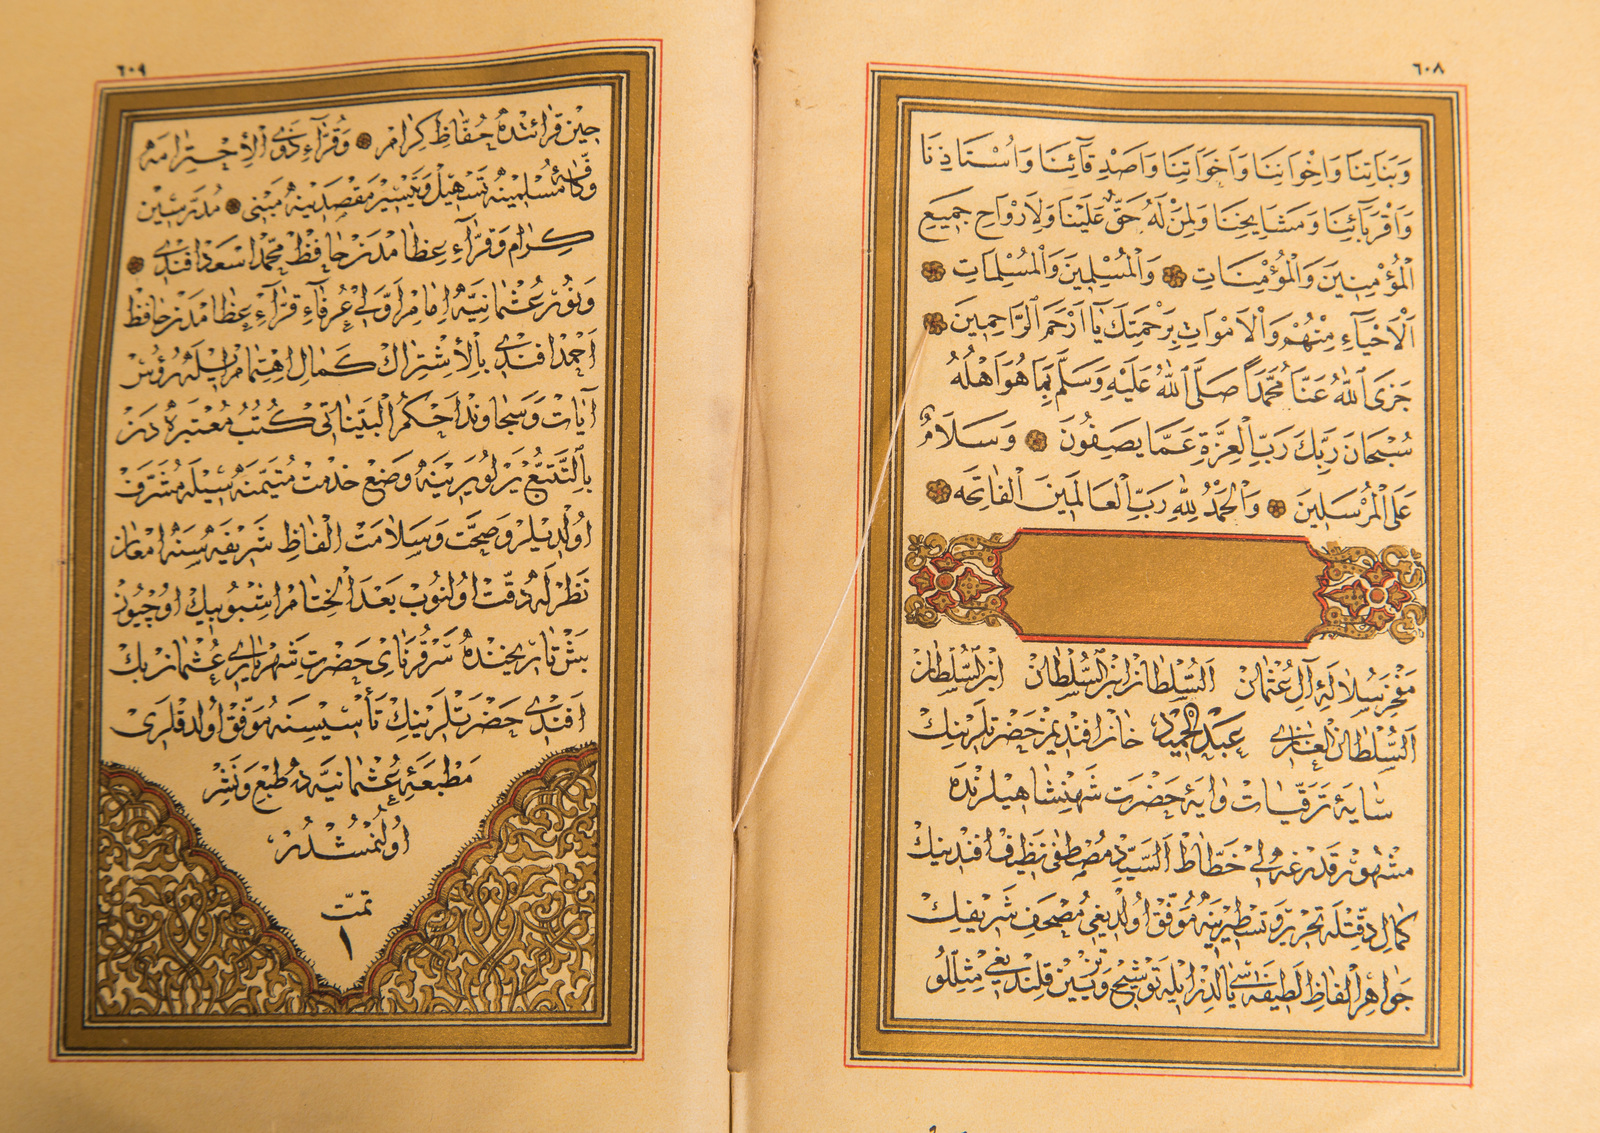 ٦٠٨
وَبَنَاتِنَا وَاِخْوَانِنَا وَاَخَوَاتِنَا وَاَصْدِقَآئِنَا وَاُسْتَاذِنَا
وَاَقْرِبَآئِنَا وَمَشَايِخِنَا وَلِمَنْ لَهُ حَقٌّ عَلَيْنَا وَلِاَرْوَاحِ جَمِيعِ
الْمُؤْمِنِينَ وَالْمُؤْمِنَاتِ وَالْمُسْلِمِينَ وَالْمُسْلِمَاتِ
اَلْاَحْيَآءِ مِنْهُمْ وَالْاَمْوَاتِ بِرَحْمَتِكَ يَآ اَرْحَمَ الرَّاحِمِينَ
جَزَى اللّٰهُ عَنَّا مُحَمَّدًا صَلَّى اللّٰهُ عَلَيْهِ وَسَلَّمَ بِمَا هُوَ اَهْلُهُ
سُبْحَانَ رَبِّكَ رَبِّ الْعِزَّةِ عَمَّا يَصِفُونَ وَسَلَامٌ
عَلَى الْمُرْسَلِينَ وَالْحَمْدُ لِلّٰهِ رَبِّ الْعَالَمِينَ الْفَاتِحَه
مَفْخَرِ سُلَالَهٔ آلِ عُثْمَان اَلسُّلْطَان ابْنُ السُّلْطَان ابْنُ السُّلْطَان
اَلسُّلْطَانُ الْغَازِى عَبْدُ الْحَمِيدْ خَانْ اَفَنْدِيمِزْ حَضْرَتْلَرِينِكْ
سَايَهٔ تَرَقِّيَاتْ وَايَهٔ حَضْرَتِ شَهِنْشَاهِيلَرِنْدَه
مَشْهُورْ قَدِرْغَهلِى خَطَّاطْ اَلسَّيِّدْ مُصْطَفٰى نَظِيفْ اَفَنْدِينِكْ
كَمَالِ دِقَّتْلَه تَحْرِيرْ وَتَسْطِيرِينَه مُوَفَّقْ اُولْدِيغِى مُصْحَفِ شَرِيفِكْ
جَوَاهِرِ اَلْفَاظِ لَطِيفَهسِى يَالْدِزْ اِيلَه تَوْشِيحْ وَتَزْيِينْ قِلِنْدِيغِى مِثِلّلُو
٦٠٩
حِينِ قِرَائَتْدَه حُفَّاظِ كِرَامَه وَقُرَّآءِ ذَوِى الْاِحْتِرَامَه
وَكَافَّهٔ مُسْلِمِينَه تَسْهِيلْ وَتَيْسِيرْ مَقْصَدِينَه مَبْنِى مُدَرِّسِينِ
كِرَامْ وَقُرَّآءِ عِظَامْدَنْ حَافِظْ مُحَمَّدْ اَسْعَدْ اَفَنْدِى
وَنُورِ عُثْمَانِيَّه اِمَامِ اَوَّلِى عُرَفَآءِ قُرَّآءِ عِظَامْدَنْ حَافِظْ
اَحْمَدْ اَفَنْدِى بِالْاِشْتِرَاكْ كَمَالِ اِهْتِمَامْ اِيلَه رُؤُسْ
اٰيَاتْ وَسَجَاوَنْدْ اَحْكَمُ الْبَيِّنَاتِى كُتُبِ مُعْتَبَرَهدَنْ
بِالتَّتَبُّعْ يَرْلُو يَرِينَه وَضْعْ خِدْمَتِ مُتَيَمِّنَهسِيلَه مُشَرَّفْ
اُولْدِيلَرْ وَصِحَّتْ وَسَلَامَتِ اَلْفَاظِ شَرِيفَهسِنَه اِمْعَانْ
نَظَرْلَه دِقَّتْ اُولُنُوبْ بَعْدَ الْخِتَامْ اِشْبُو بِيكْ اُوچْيُوزْ
بَشْ تَارِيخِنْدَه سَرْقُرَنَاىِ حَضْرَتِ شَهْرِيَارِى عُثْمَانْ بَكْ
اَفَنْدِى حَضْرَتْلَرِينِكْ تَأْسِيسِنَه مُوَفَّقْ اُولْدِقْلَرِى
مَطْبَعَهٔ عُثْمَانِيَّهدَه طَبْعْ وَنَشْرْ
اُولُنْمُشْدُرْ
تمّت
١